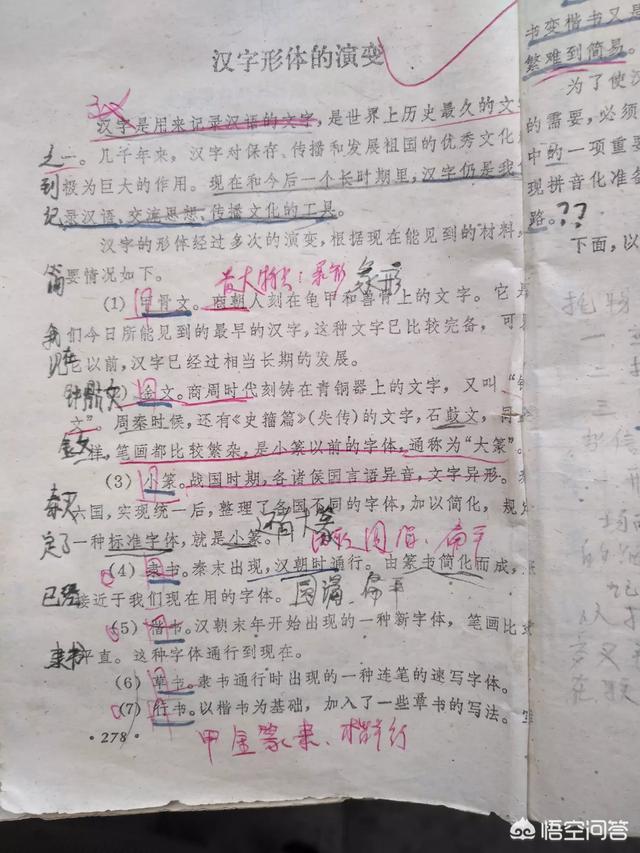 汉字形体的演变
汉字是用来记录汉语的文字，是世界上历史最久的文
之一。几千年来，汉字对保存、传播和发展祖国的优秀文化
到极为巨大的作用。现在和今后一个长时期里，汉字仍是我
记录汉语、交流思想、传播文化的工具。
汉字的形体经过多次的演变，根据现在能见到的材料，
简要情况如下。
象形
(1) 甲骨文。商朝人刻在龟甲和兽骨上的文字。它是
我们今日所能见到的最早的汉字，这种文字已比较完备，可
它以前，汉字已经过相当长期的发展。
钟鼎文
(2) 金文。商周时代刻铸在青铜器上的文字，又叫“钟
文”。周秦时候，还有《史籀篇》(失传)的文字，石鼓文，
金文
样，笔画都比较繁杂，是小篆以前的字体，通称为“大篆”。
(3) 小篆。战国时期，各诸侯国言语异音，文字异形。
六国，实现统一后，整理了各国不同的字体，加以简化，规
定了一种标准字体，就是小篆。
扁平
(4) 隶书。秦末出现，汉朝时通行。由篆书简化而成，
已经接近于我们现在用的字体。
扁平
(5) 楷书。汉朝末年开始出现的一种新字体，笔画比
隶书平直。这种字体通行到现在。
(6) 草书。隶书通行时出现的一种连笔的速写字体。
(7) 行书。以楷书为基础，加入了一些草书的写法。
·278·
甲金篆隶、楷草行
书变楷书又是
繁难到简易。
为了使汉
的需要，必须
中的一项重要
现拼音化准备
路。??
下面，以
悟空问答